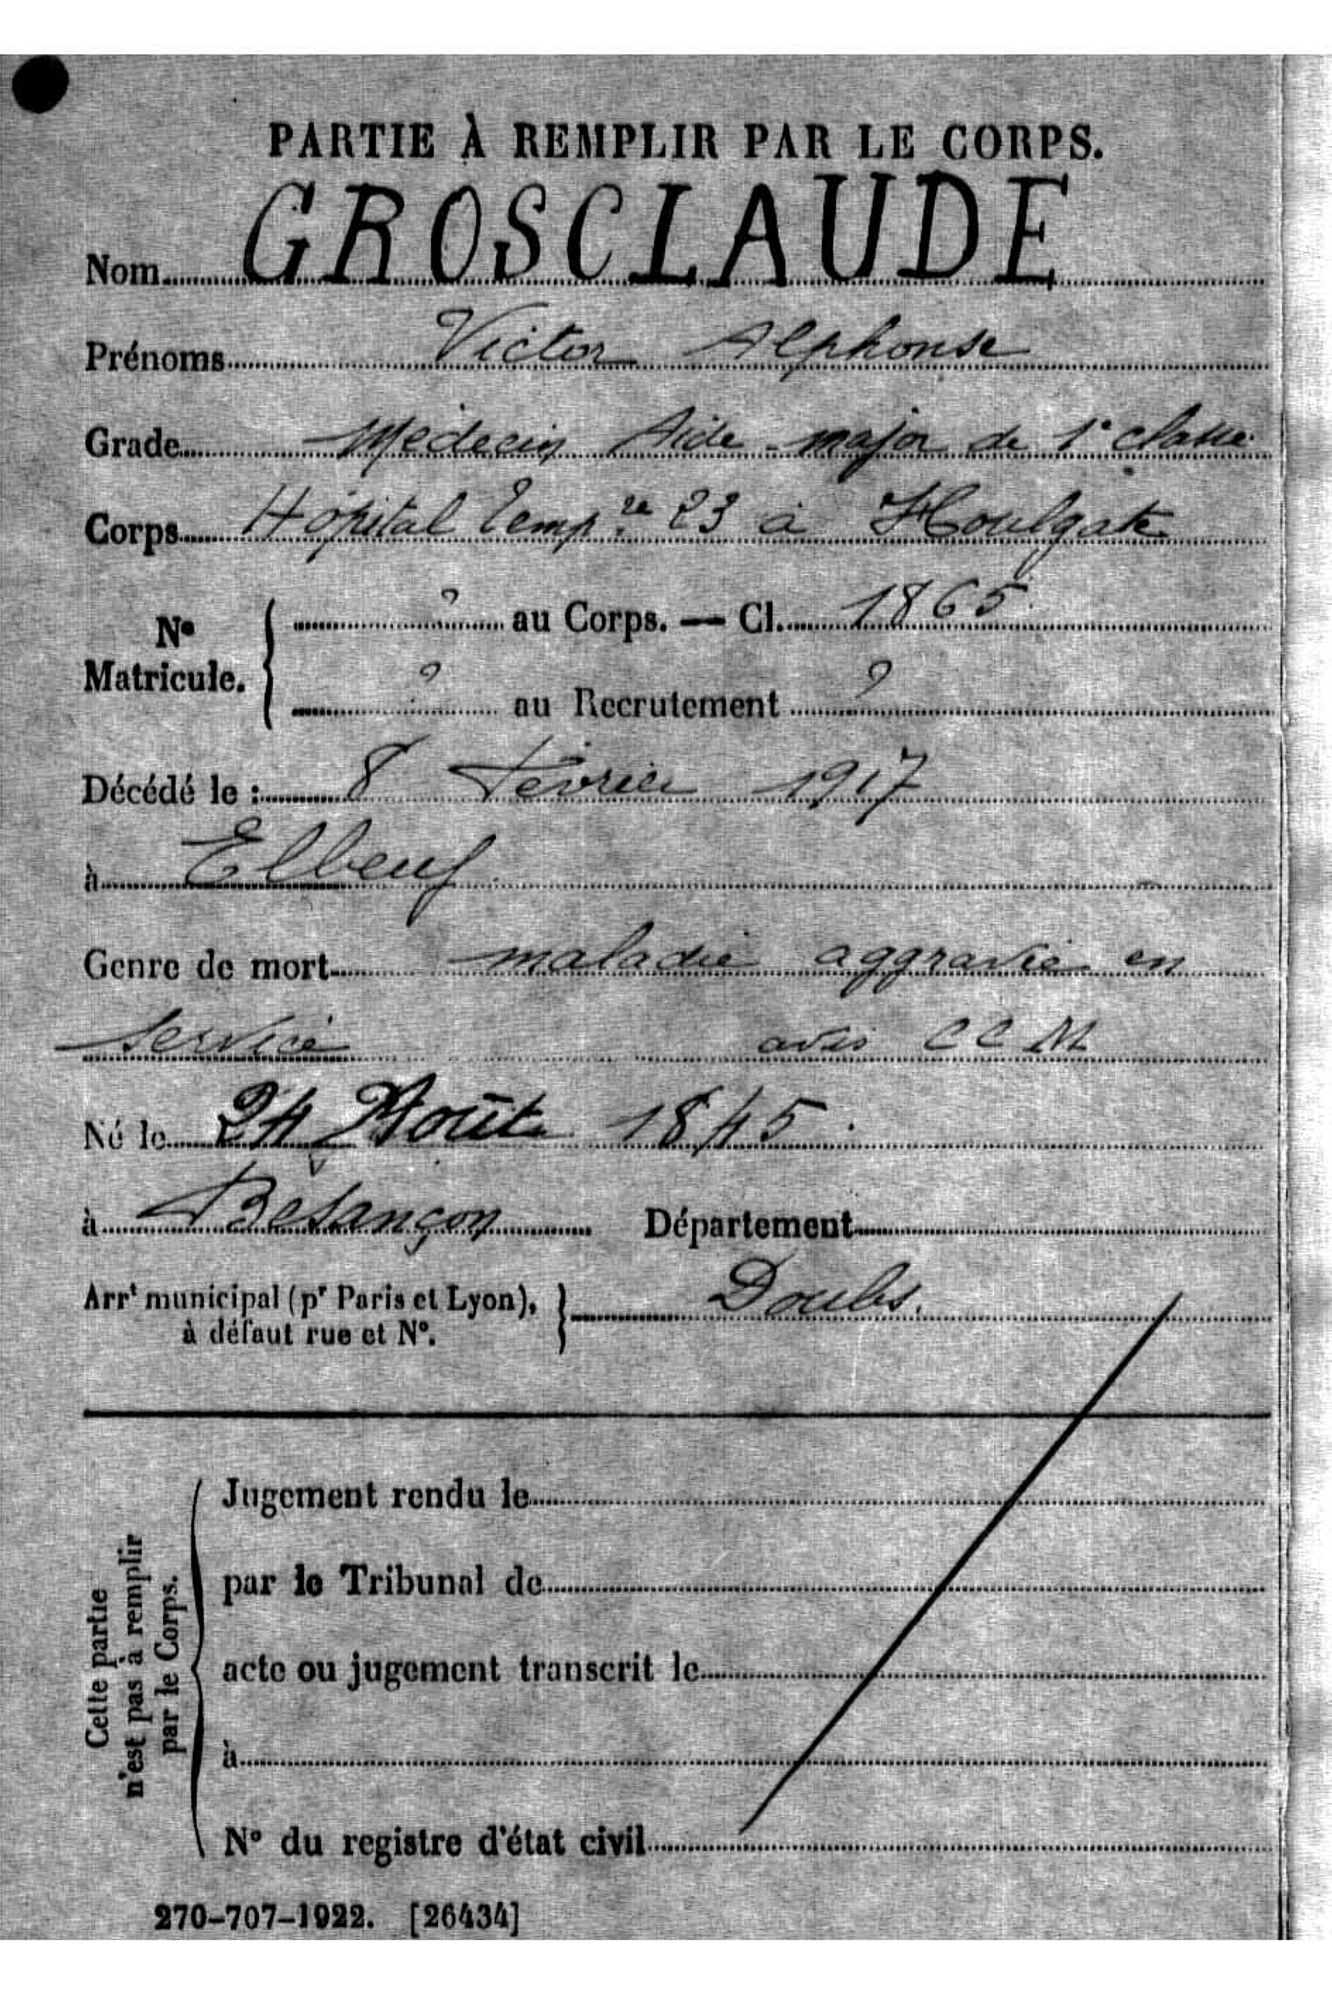 PARTIE À REMPLIR PAR LE CORPS.
Nom GROSCLAUDE
Prénoms Victor Alphonse
Grade Médecin Aide-major de 1e classe
Corps Hôpital Temp.re 23 à Houlgate
No Matricule. { ? au Corps. — Cl. 1865
? au Recrutement ?
Décédé le : 8 Février 1917
à Elbeuf
Genre de mort maladie aggravée en
service avis CCM
Né le 24 Août 1845.
à Besançon Département
Arrt municipal (pr Paris et Lyon), à défaut rue et No. } Doubs.
Cette partie n'est pas à remplir par le Corps.
Jugement rendu le
par le Tribunal de
acte ou jugement transcrit le
à
No du registre d'état civil
270-707-1922. [26434]